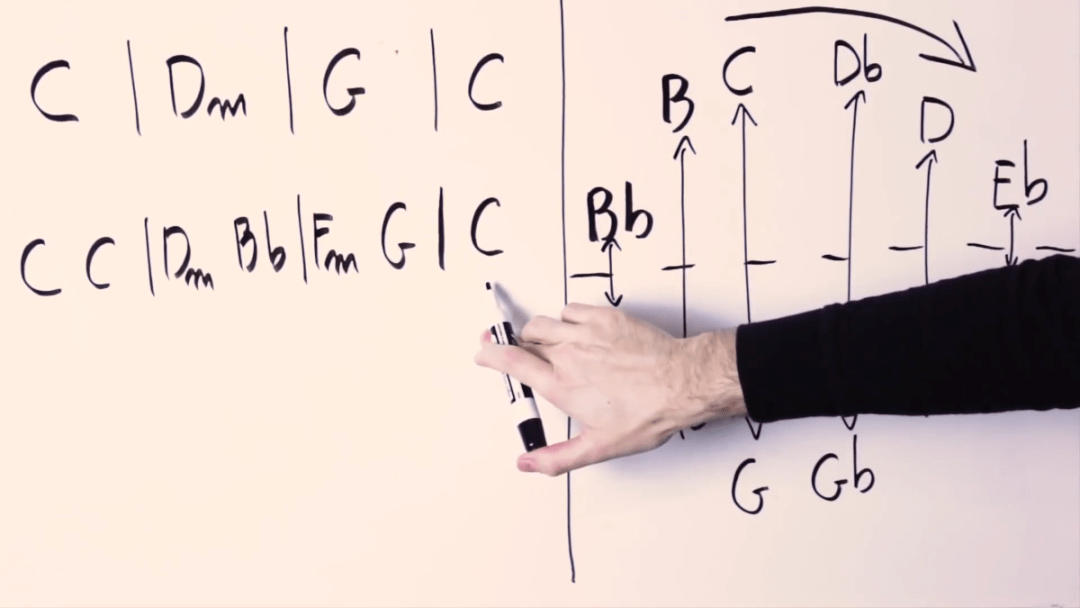 C | Dm | G | C
C C | Dm Bb | Fm G | C
Bb B C Db D Eb
G Gb